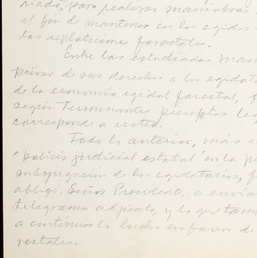 riado, para realizar maniobras
el fin de mantener en los egidos
las explotacione forestales.
Entre las estudiadas man
peñar de sus derechos a los egidata
de la economia egidal forestal, 
según preceptos le
corresponde a usted.
Todo lo anterior, más
"policia judicial estatal" en la pe
subyugación de los egidatarios,
obligó, Señor Presidente, a envia
telegrama adjunto, y lo que tam
a continuar la lucha en favor d
restales.